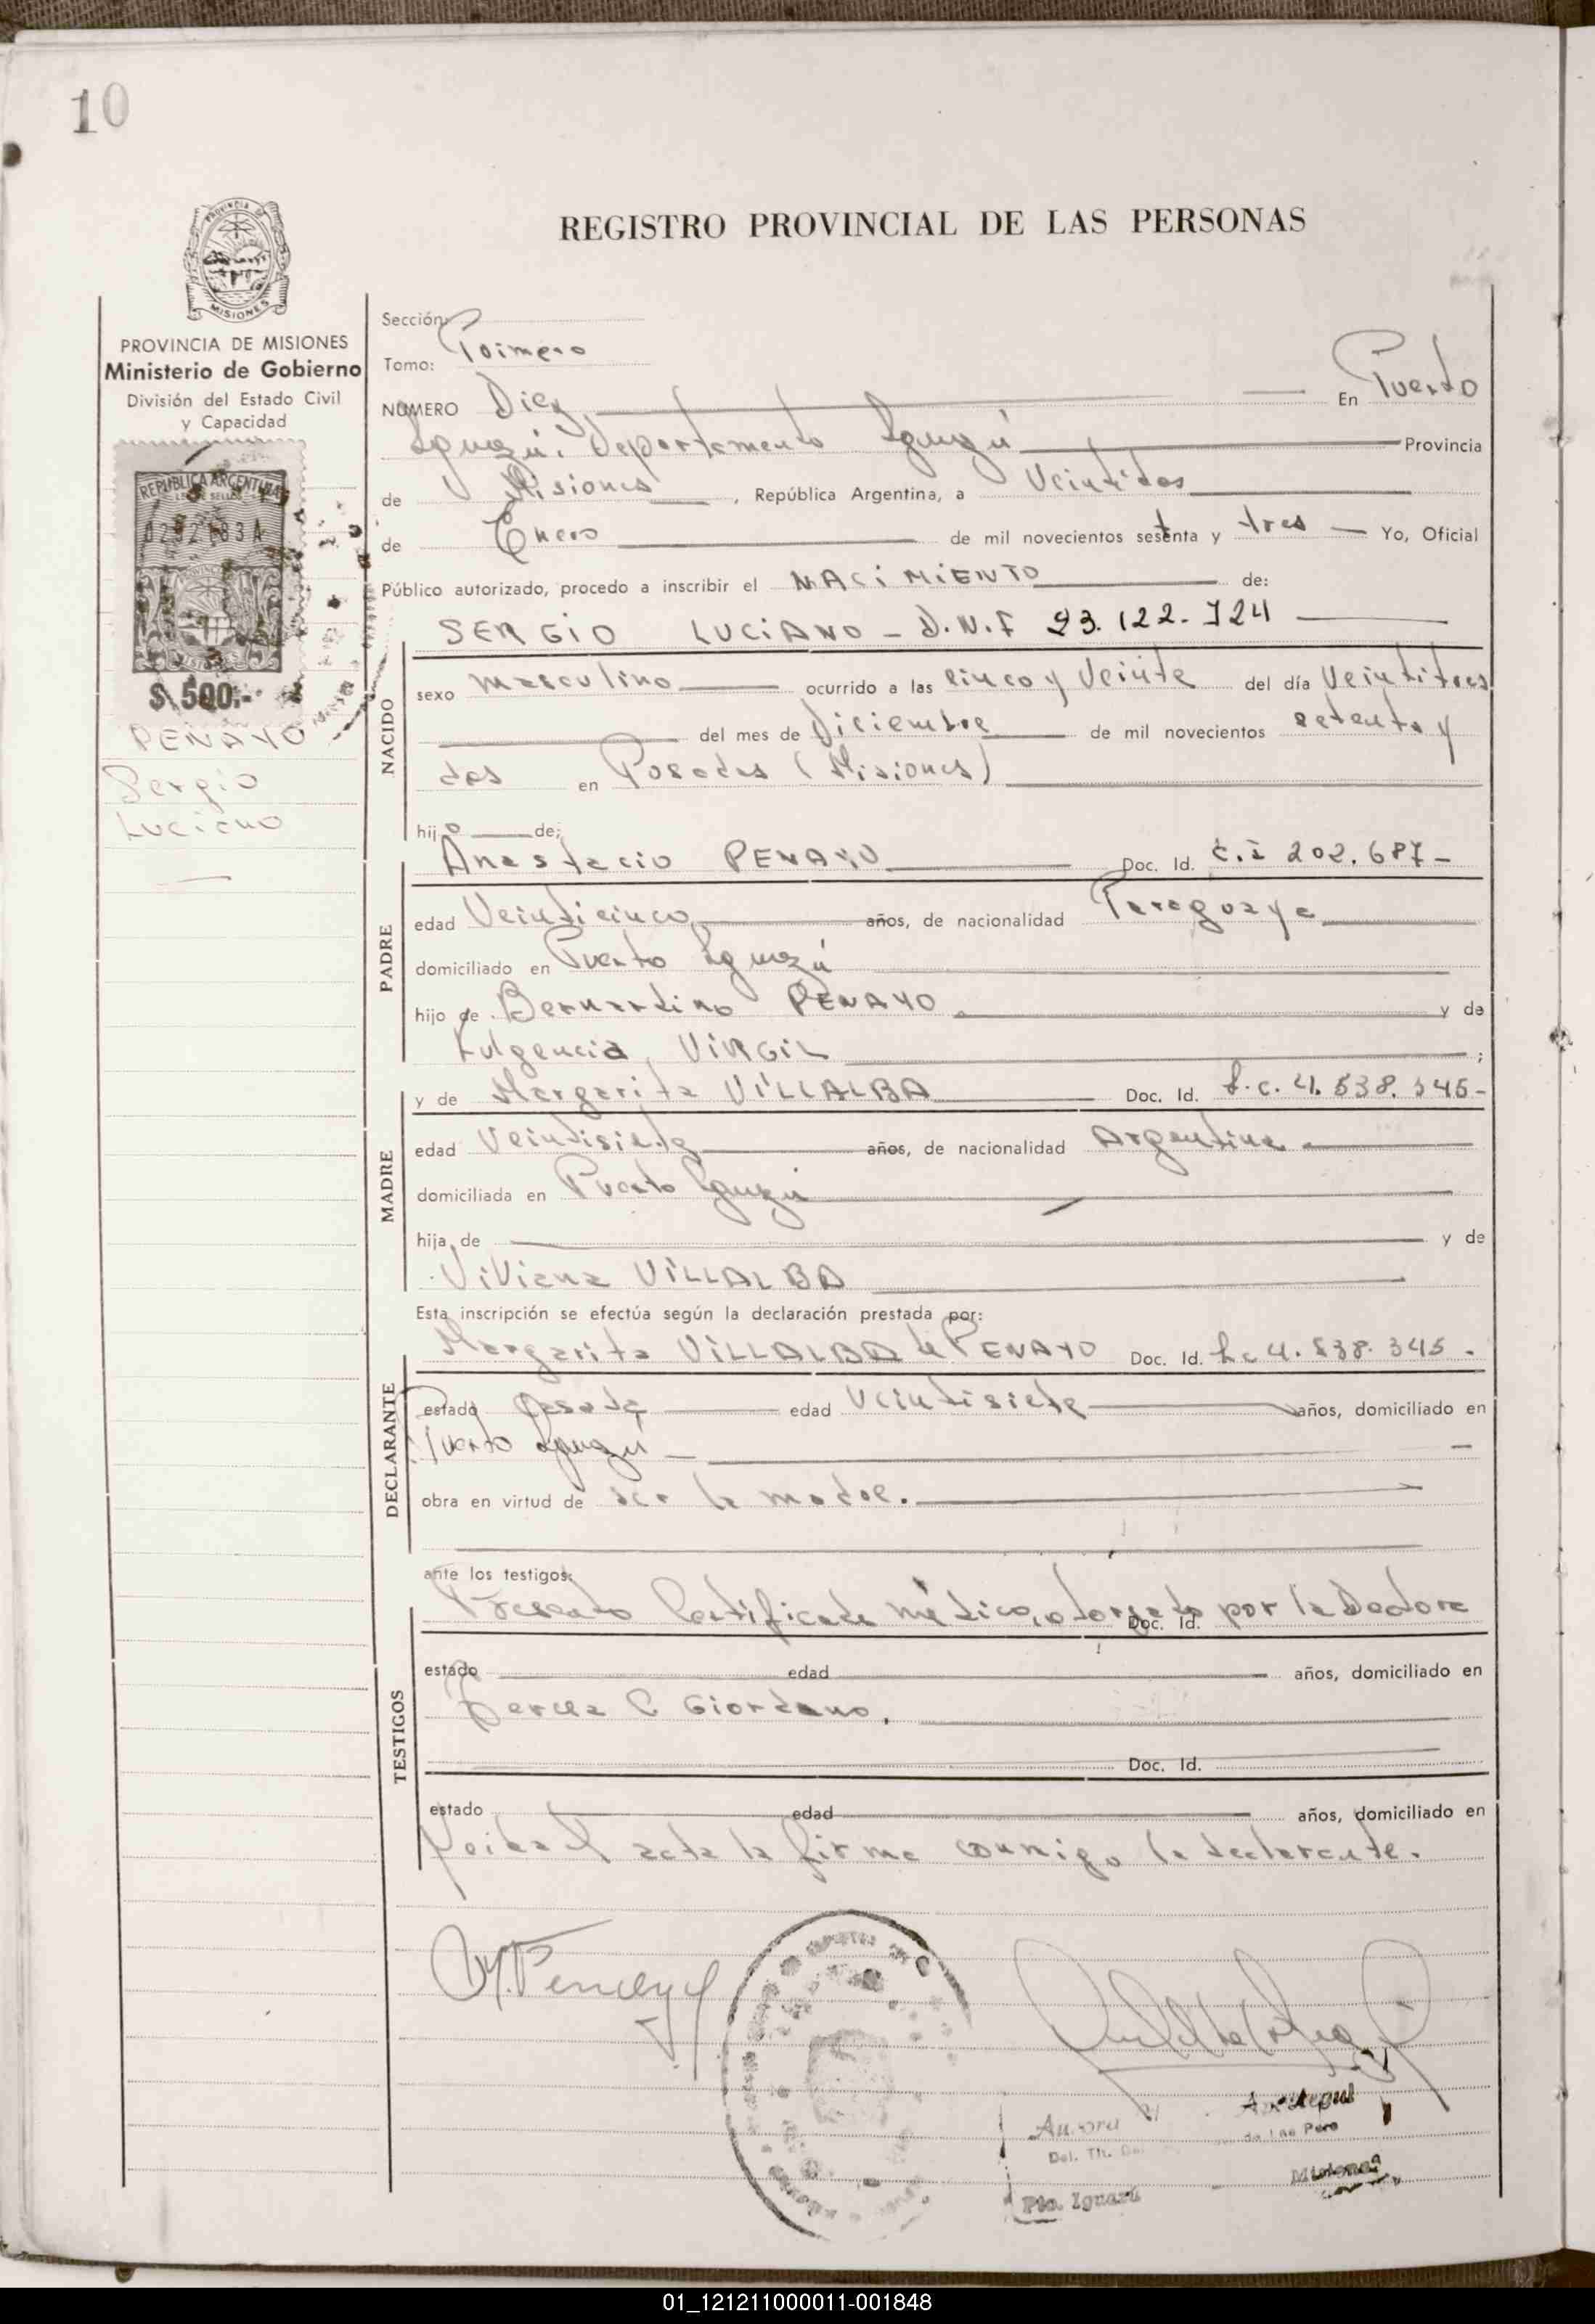 10
REGISTRO PROVINCIAL DE LAS PERSONAS
MISIONES
PROVINCIA DE MISIONES
Ministerio de Gobierno
División del Estado Civil
y Capacidad
REPUBLICA ARGENTINA
$ 500.-
PENAYO
Sergio
Luciano
Sección:
Tomo: Primero
NUMERO Diez En Puerto
Iguazú, Departamento Iguazú Provincia
de Misiones, República Argentina, a Veintidos
de Enero de mil novecientos setenta y tres Yo, Oficial
Público autorizado, procedo a inscribir el NACIMIENTO de:
SERGIO LUCIANO - D.N.I 23.122.724
NACIDO
sexo masculino ocurrido a las cinco y Veinte del día Veintitres
del mes de Diciembre de mil novecientos setenta y
dos en Posadas (Misiones)
hijo de:
Anastacio PENAYO Doc. Id. C.I 202.687-
PADRE
edad Veinticinco años, de nacionalidad Paraguaya
domiciliado en Puerto Iguazú
hijo de Bernardino PENAYO y de
Fulgencia VIRGIL;
y de Margarita VILLALBA Doc. Id. L.C. 4.538.345-
MADRE
edad Veintisiete años, de nacionalidad Argentina
domiciliada en Puerto Iguazú
hija de y de
Viviana VILLALBA
Esta inscripción se efectúa según la declaración prestada por:
Margarita VILLALBA de PENAYO Doc. Id. L.c 4.538.345.
DECLARANTE
estado Casada edad Veintisiete años, domiciliado en
Puerto Iguazú
obra en virtud de ser la madre.
ante los testigos:
Presento Certificado médico, otorgado por la Doctora
Doc. Id.
TESTIGOS
estado edad años, domiciliado en
C Giordano.
Doc. Id.
estado edad años, domiciliado en
Leida el acta la firma conmigo la declarante.
Aurora
Pto. Iguazú
Misiones
01_121211000011-001848